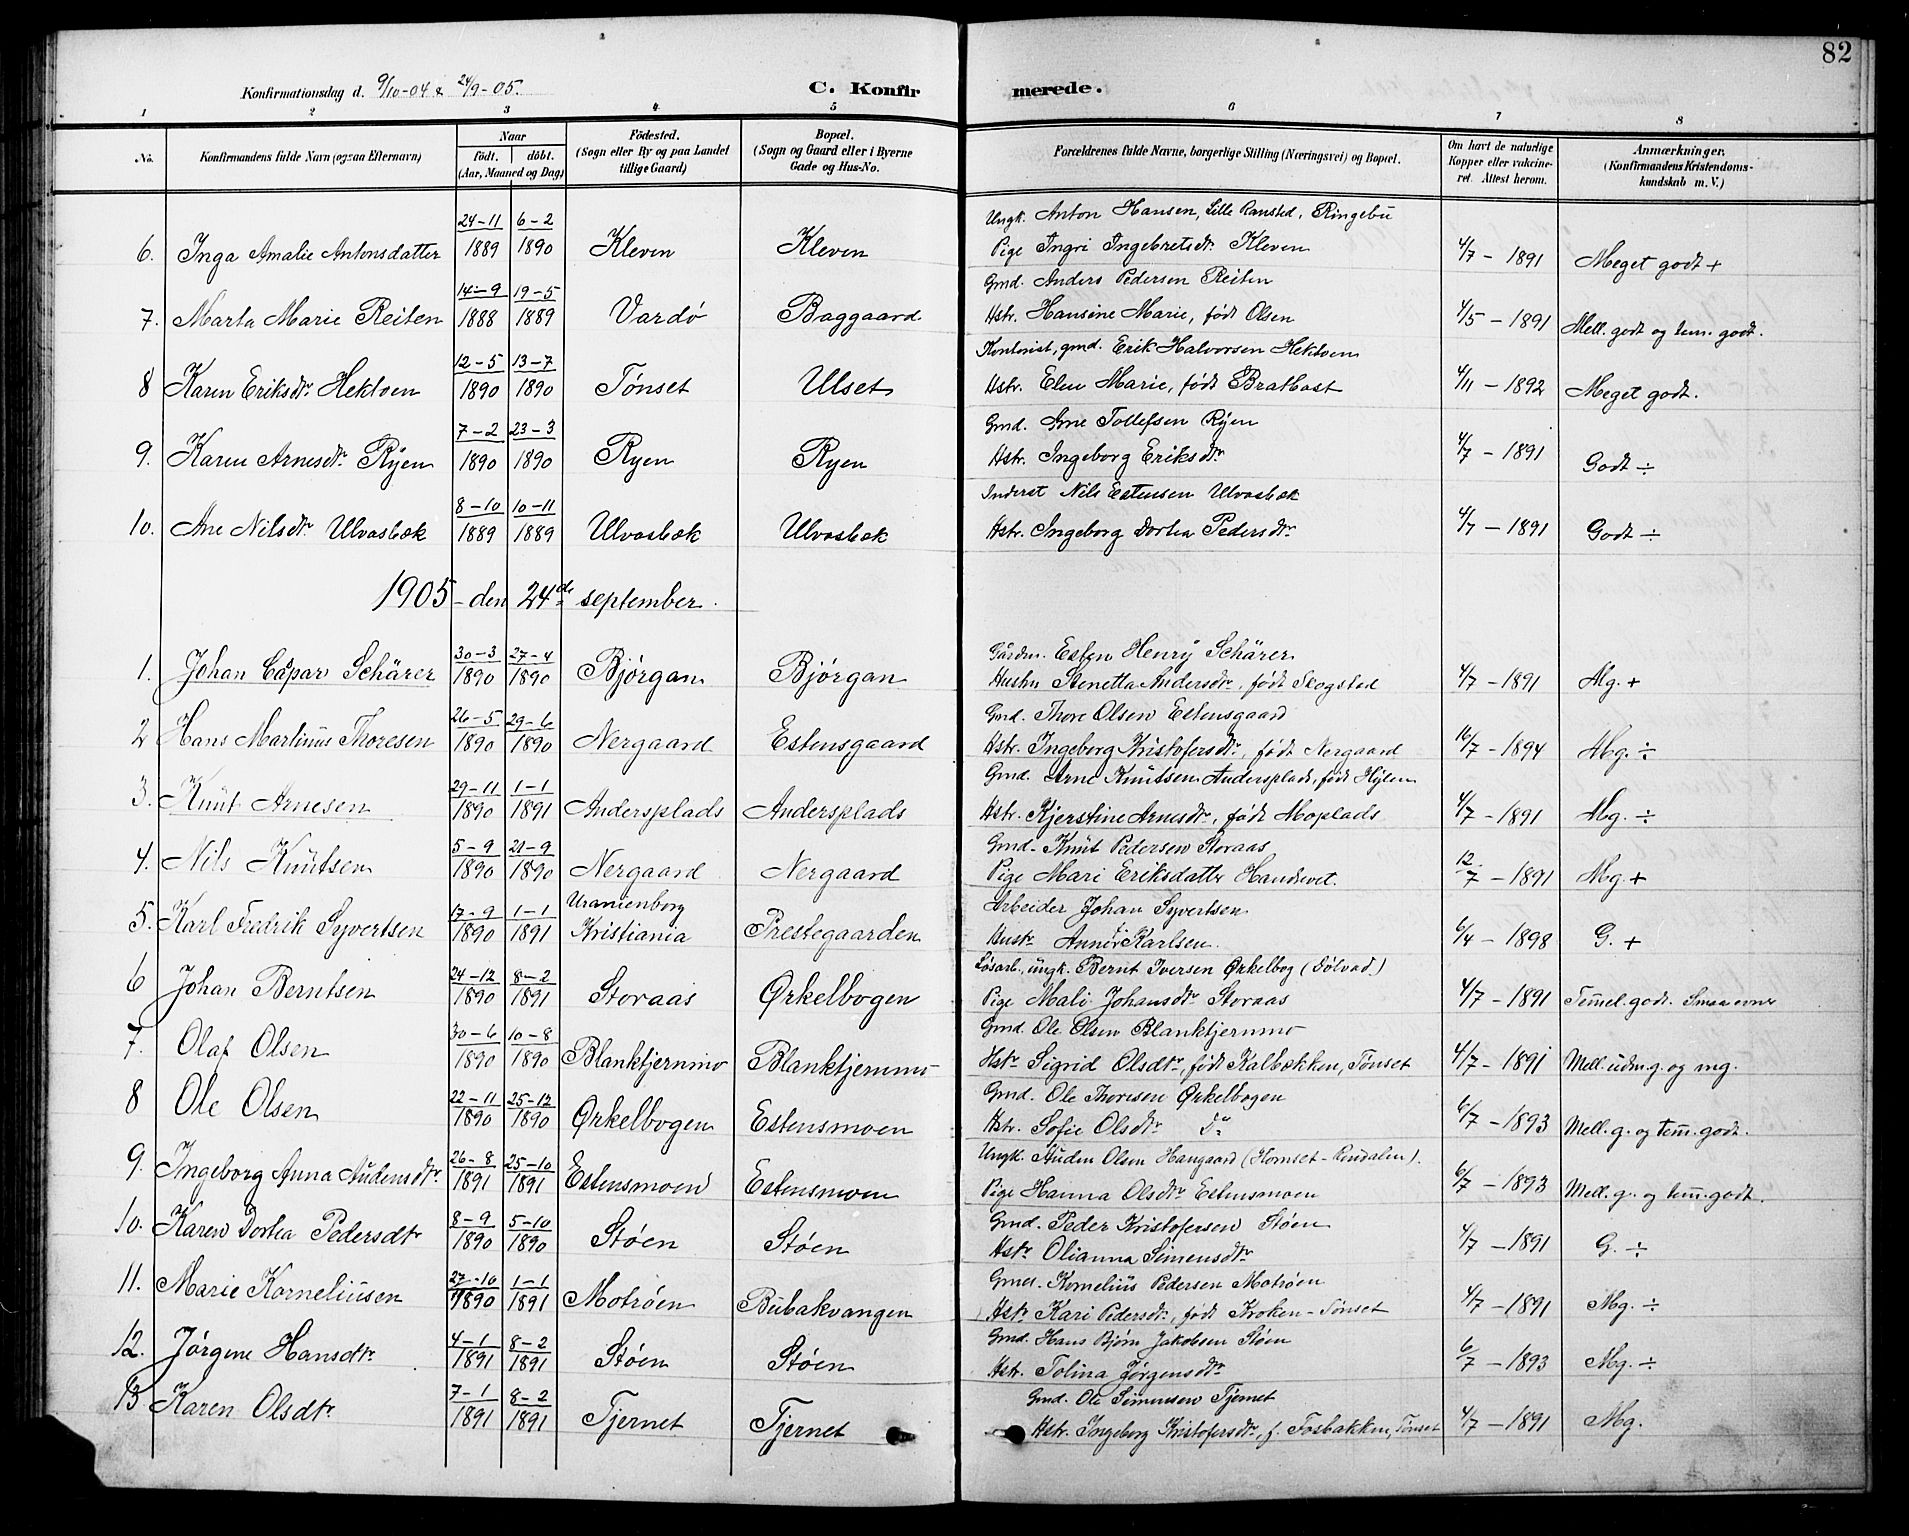 82
Konfirmationsdag d. 9/10-04 & 24/9-05.
C. Konfirmerede.
1 2 3 4 5 6 7 8
No. Konfirmandens fulde Navn (ogsaa Efternavn) Naar født. døbt. (Aar, Maaned og Dag) Fødested. (Sogn eller By og paa Landet tillige Gaard) Bopæl. (Sogn og Gaard eller i Byerne Gade og Hus-No.) Forældrenes fulde Navne, borgerlige Stilling (Næringsvei) og Bopæl. Om havt de naturlige Kopper eller vakcineret. Attest herom. Anmærkninger, (Konfirmandens Kristendomskundskab m. V.)
24-11 6-2 Ungk. Anton Hansen, Lille Ransted, Ringebu
6. Inga Amalie Antonsdatter 1889 1890 Kleven Kleven Pige Ingri Ingebretsdtr Kleven 4/7 - 1891 Meget godt +
14-9 19-5 Gmd. Anders Pedersen Reiten
7. Marta Marie Reiten 1888 1889 Vardø Baggaard Hstr. Hansine Marie, født Olsen 4/5 - 1891 Mell. godt og tem. godt.
12-5 13-7 Kontorist, gmd. Erik Halvorsen Hektoen
8 Karen Eriksdtr Hektoen 1890 1890 Tønset Ulset Hstr. Elen Marie, født Bratbost 4/11 - 1892 Meget godt.
7-2 23-3 Gmd. Arne Tollefsen Ryen
9. Karen Arnesdtr Ryen 1890 1890 Ryen Ryen Hstr. Ingeborg Eriksdtr 4/7 - 1891 Godt ÷
8-10 10-11 Inderst Nils Estensen Ulvasbæk
10. Ane Nilsdtr Ulvasbæk 1889 1889 Ulvasbæk Ulvasbæk Hstr. Ingeborg Dortea Pedersdtr 4/7 - 1891 Godt ÷
1905 - den 24de september.
30-3 27-4 Gårdm. Esten Henry Schärer
1. Johan Cåpar Schärer 1890 1890 Bjørgan Bjørgan Hustru Stenetta Andersdtr, født Skogstad 4/7 - 1891 Mg. +
26-5 29-6 Gmd. Thore Olsen Estensgaard
2 Hans Martinus Thoresen 1890 1890 Nergaard Estensgaard Hstr. Ingeborg Kristofersdtr, født Nergaard 16/7 - 1894 Mg. ÷
29-11 1-1 Gmd. Arne Knutsen Andersplads, født Hylen
3. Knut Arnesen 1890 1891 Andersplads Andersplads Hstr. Kjerstine Arnesdtr, født Moplads 4/7 - 1891 Mg. ÷
5-9 21-9 Gmd. Knut Pedersen Storaas
4. Nils Knutsen 1890 1890 Nergaard Nergaard Pige Mari Eriksdatter 12/7 - 1891 Mg. +
17-9 1-1 Uranienborg Arbeider Johan Syvertsen
5. Karl Fredrik Syvertsen 1890 1891 Kristiania Prestegaarden Hustr Karlsen. 6/4 - 1898 G. +
24-12 8-2 Løsarb., ungk. Bernt Iversen Ørkelbog (Sølvad.)
6 Johan Berntsen 1890 1891 Storaas Ørkelbogen Pige Mali Johansdtr Storaas 4/7 - 1891 Temmel. godt. Smaa evner
30-6 10-8 Gmd. Ole Olsen Blanktjernmo
7. Olaf Olsen 1890 1890 Blanktjernmo Blanktjernmo Hstr Sigrid Olsdtr, født Kalbækken, Tønset 4/7 - 1891 Mell. udm. g. og mg.
22-11 25-12 Gmd. Ole Thoresen Ørkelbogen
8 Ole Olsen 1890 1890 Ørkelbogen Estensmoen Hstr. Sofie Olsdtr do 6/7 - 1893 Mell. g. og tem. godt.
26-8 25-10 Ungk. Auden Olsen Haugaard (Komset - Rendalen).
9. Ingeborg Anna Audensdtr. 1891 1891 Estensmoen Estensmoen Pige Hanna Olsdtr Estensmoen 6/7 - 1893 Mell. g. og tem. godt.
8-9 5-10 Gmd. Peder Kristofersen Støen
10. Karen Dortea Pedersdtr 1890 1890 Støen Støen Hstr Olianna Simensdtr 4/7 - 1891 G. ÷
27-10 1-1 Gmd. Kornelius Pedersen Motrøen
11. Marie Korneliusen 1890 1891 Motrøen Bubakvangen Hstr Kari Pedersdtr, født Kroken - Tønset 4/7 - 1891 Mg. ÷
4-1 8-2 Gmd. Hans Bjørn Jakobsen Støen
12. Jørgine Hansdtr. 1891 1891 Støen Støen Hstr. Tolina Jørgensdtr 6/7 - 1893 Mg. ÷
7-1 8-2 Gmd. Ole Simensen Tjernet
13 Karen Olsdtr. 1891 1891 Tjernet Tjernet Hstr. Ingeborg Kristofersdtr, f. Fosbakken, Tønset 4/7 - 1891 Mg.